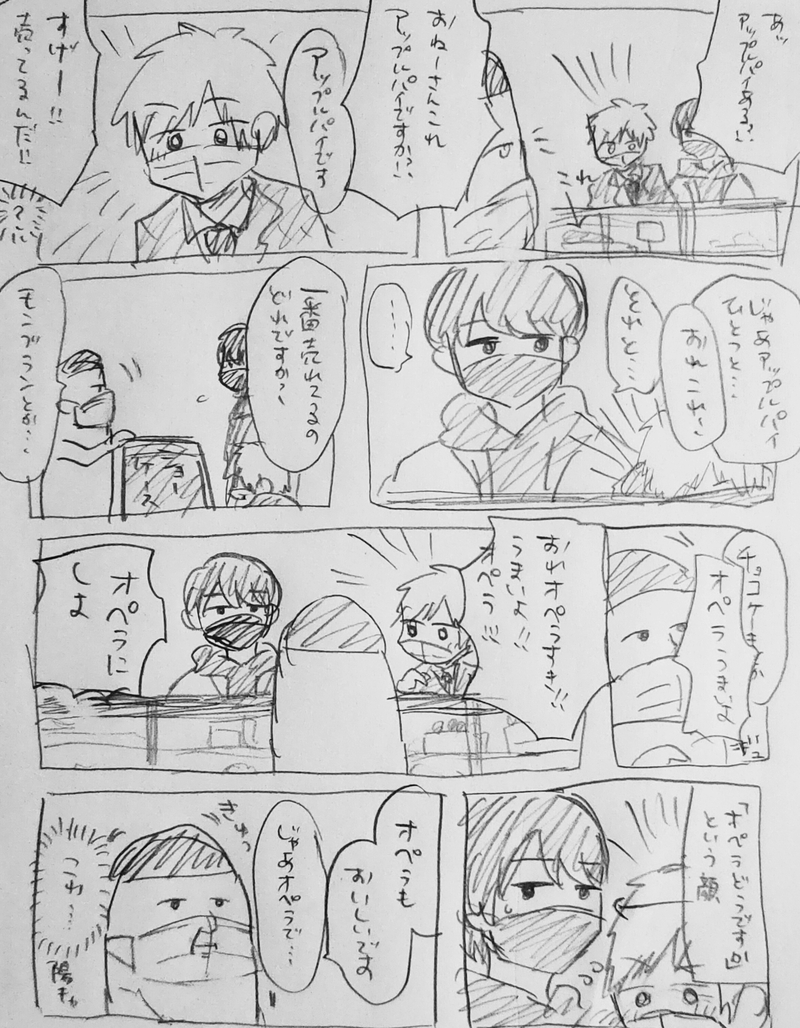 あッ
アップルパイある?!
これ
おねーさんこれ
アップルパイですか?!
アップルパイです
すげー!!
売ってるんだ!!
じゃあアップルパイ
ひとつと…
おれこれ〜
それと…
……
一番売れてるの
どれですか?
ショー
ケース
モンブランとか…
チョコケーキとか
オペラうまいよ
おれオペラすき!!
うまいよ!!
オペラ!!!
オペラに
しよ
「オペラどうですか」
という顔
オペラも
おいしいです
じゃあオペラで…
きゅっ
こわ…
陽キャ